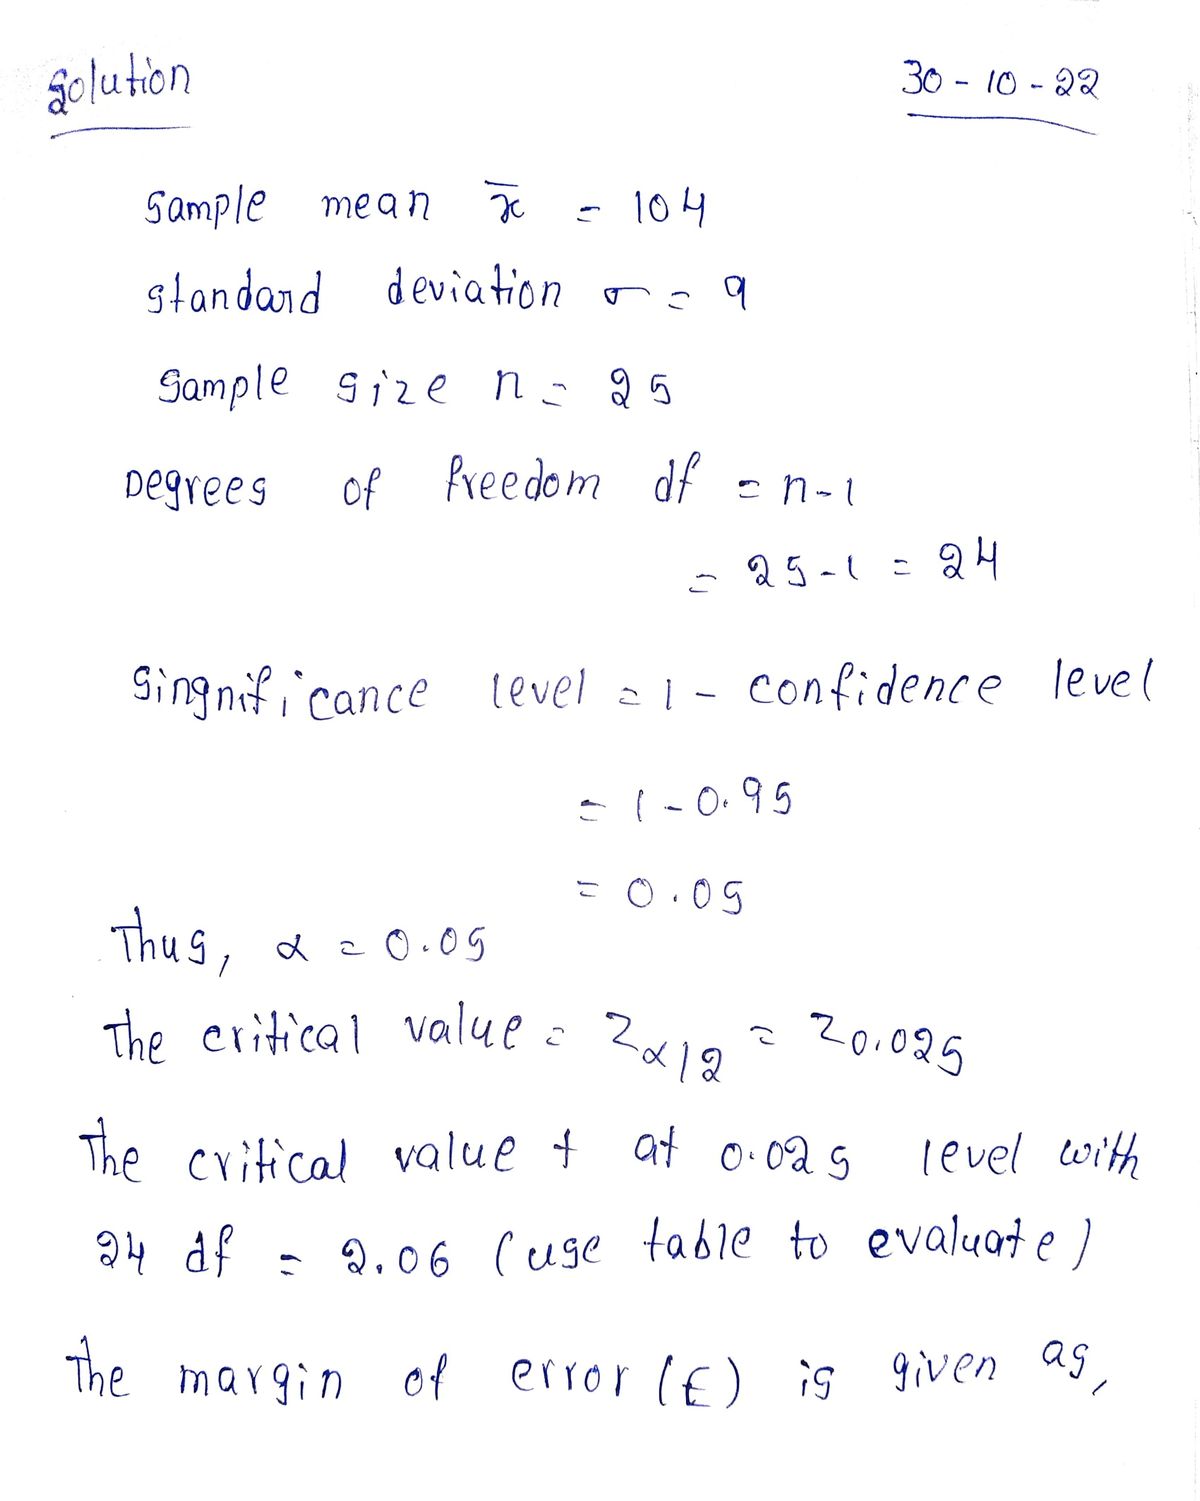 Solution
30-10-22
Sample mean x̄ = 104
standard deviation σ = 9
Sample size n = 25
Degrees of freedom df = n-1
= 25-1 = 24
Singnificance level = 1 - confidence level
= 1 - 0.95
= 0.05
Thus, α = 0.05
The critical value = Zα/2 = Z0.025
The critical value t at 0.025 level with
24 df = 2.06 (use table to evaluate)
The margin of error (E) is given as,